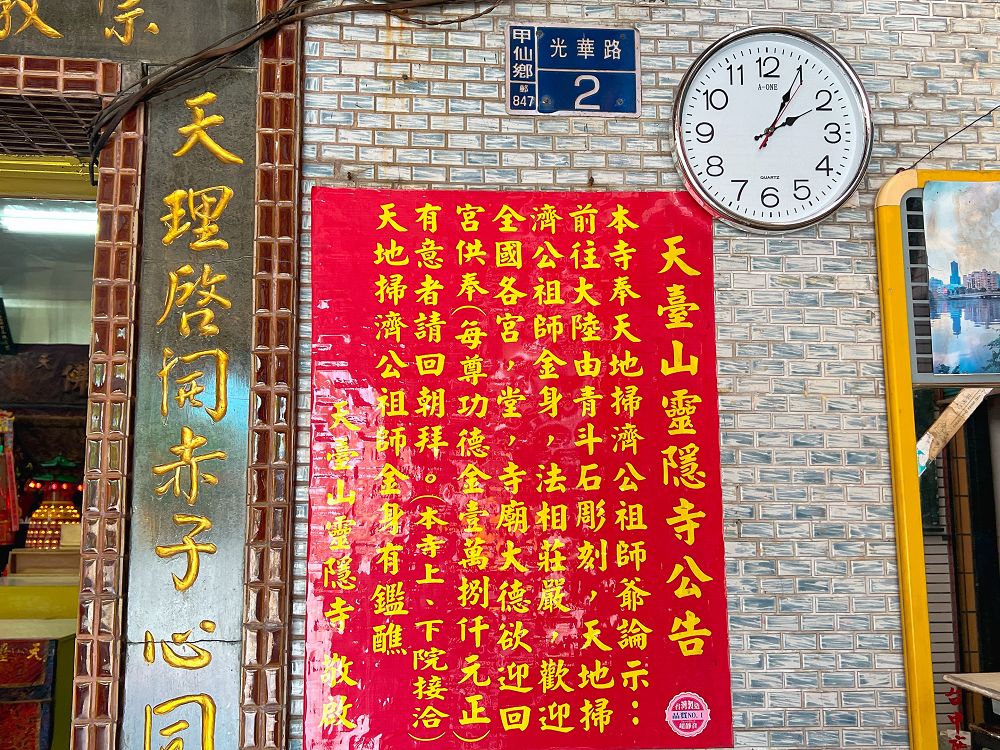 教 宗
天理啓開赤子心同
甲仙鄉
郵
847
光華路
2
12
1
2
3
4
5
6
7
8
9
10
11
A-ONE
QUARTZ
天臺山靈隱寺公告
本寺奉天地掃濟公祖師爺諭示：
前往大陸由青斗石彫刻，天地掃
濟公祖師金身，法相莊嚴，歡迎
全國各宮，堂，寺廟大德欲迎回
宮供奉（每尊功德金壹萬捌仟元正）
有意者請回朝拜。（本寺上、下院接洽）
天地掃濟公祖師金身有鑑醮
天臺山靈隱寺 敬啟
台灣製造
品質NO.1